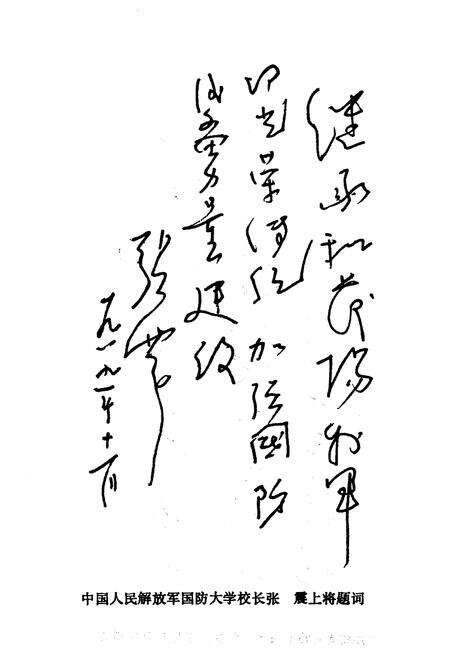 继承和发扬我军
的光荣传统加强国防
后备力量建设
张震
一九九一年十一月
中国人民解放军国防大学校长张　震上将题词